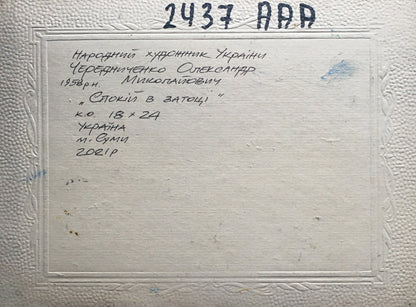 2437 ААА
Народний художник України
Чередниченко Олександр
1956р.н. Миколайович
„Спокій в затоці"
к.о. 18 x 24
Україна
м. Суми
2021р